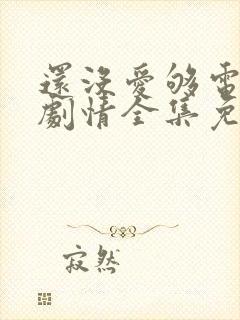 還沒愛够電
劇情全集免
寂然